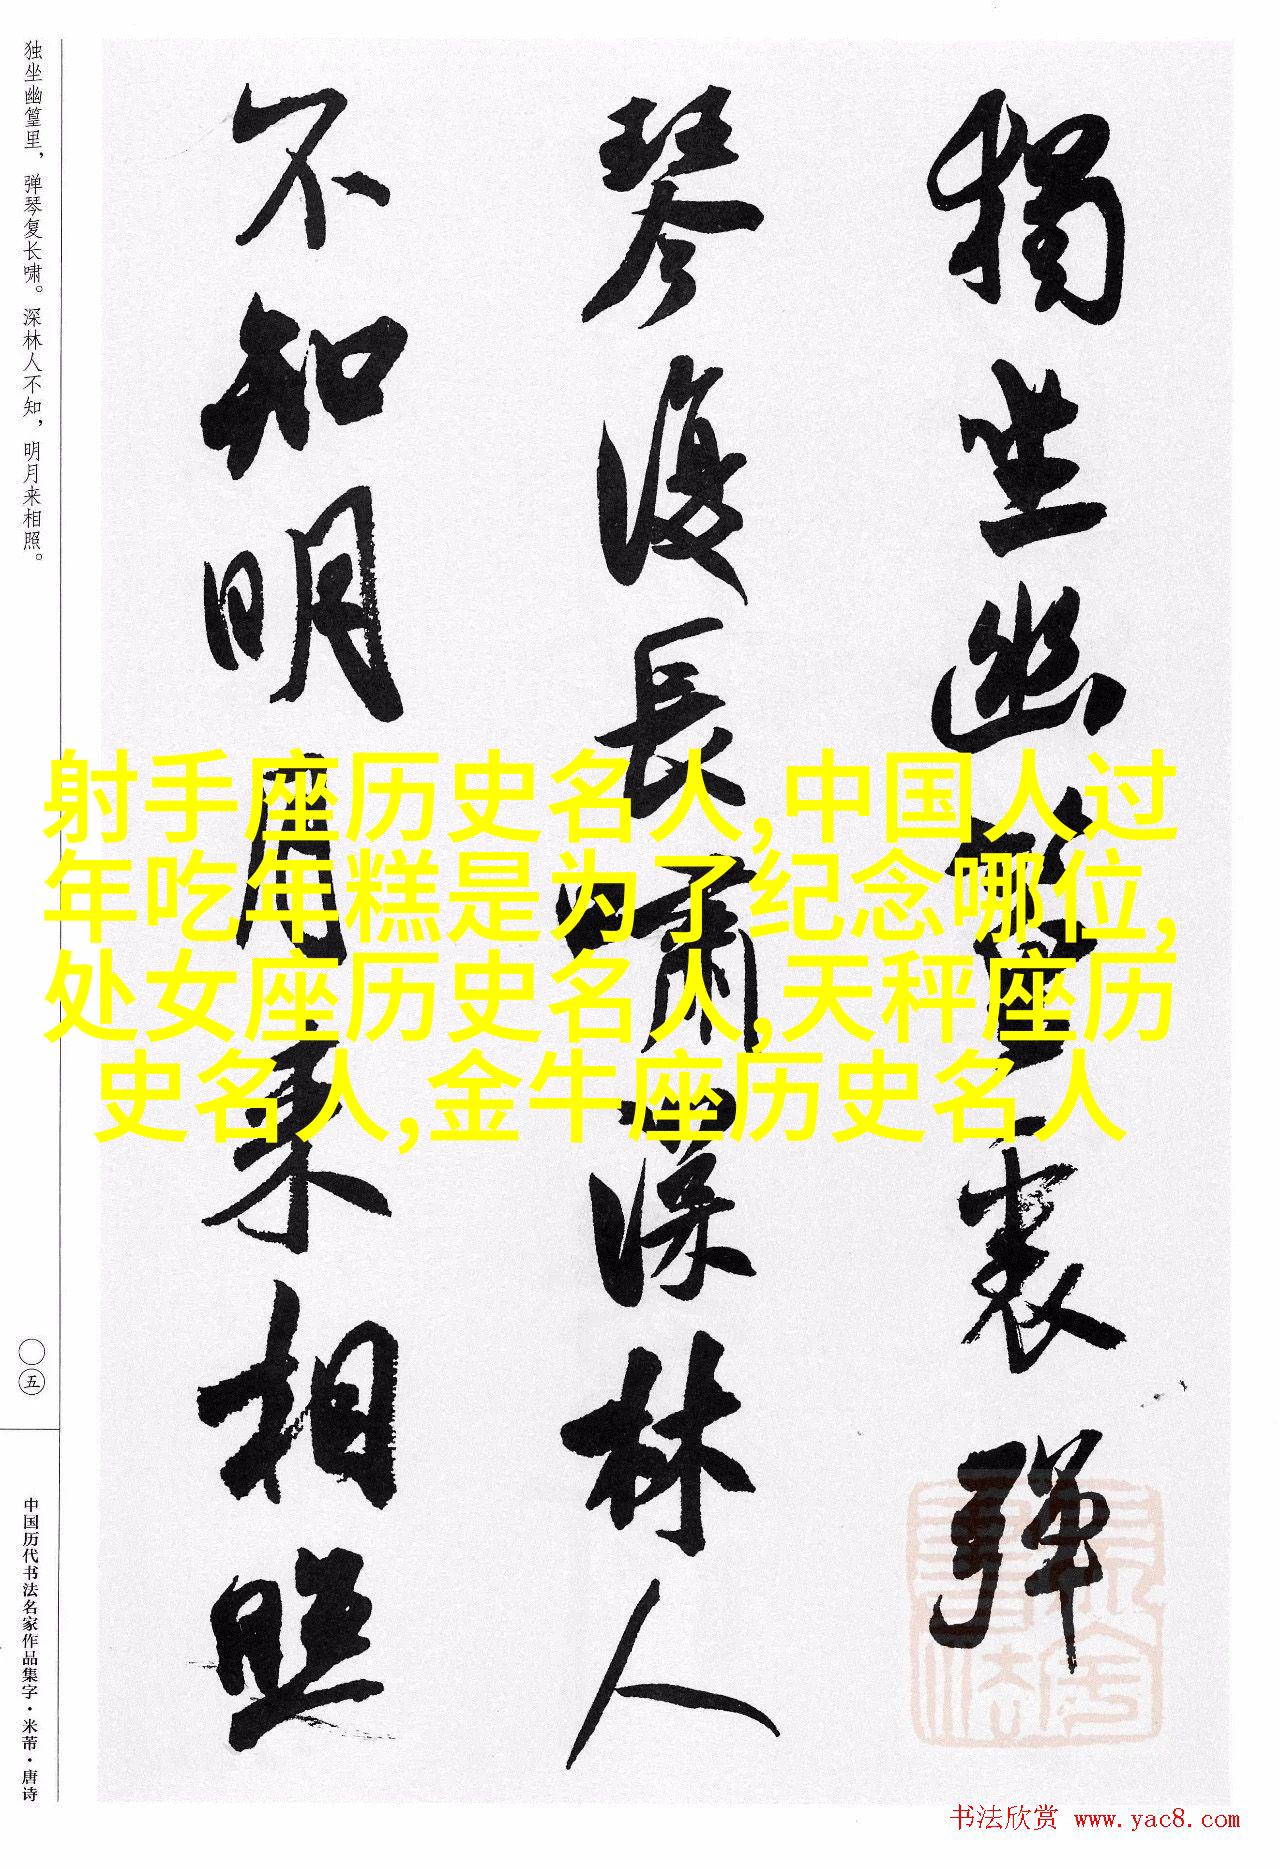 獨坐幽篁裏彈
琴復長嘯深林人
不知明月來相照
独坐幽篁里，弹琴复长啸。深林人不知，明月来相照。
〇五
中国历代书法名家作品集字·米芾·唐诗
射手座历史名人,中国人过
年吃年糕是为了纪念哪位,
处女座历史名人,天秤座历
史名人,金牛座历史名人
书法欣赏 www.yac8.com